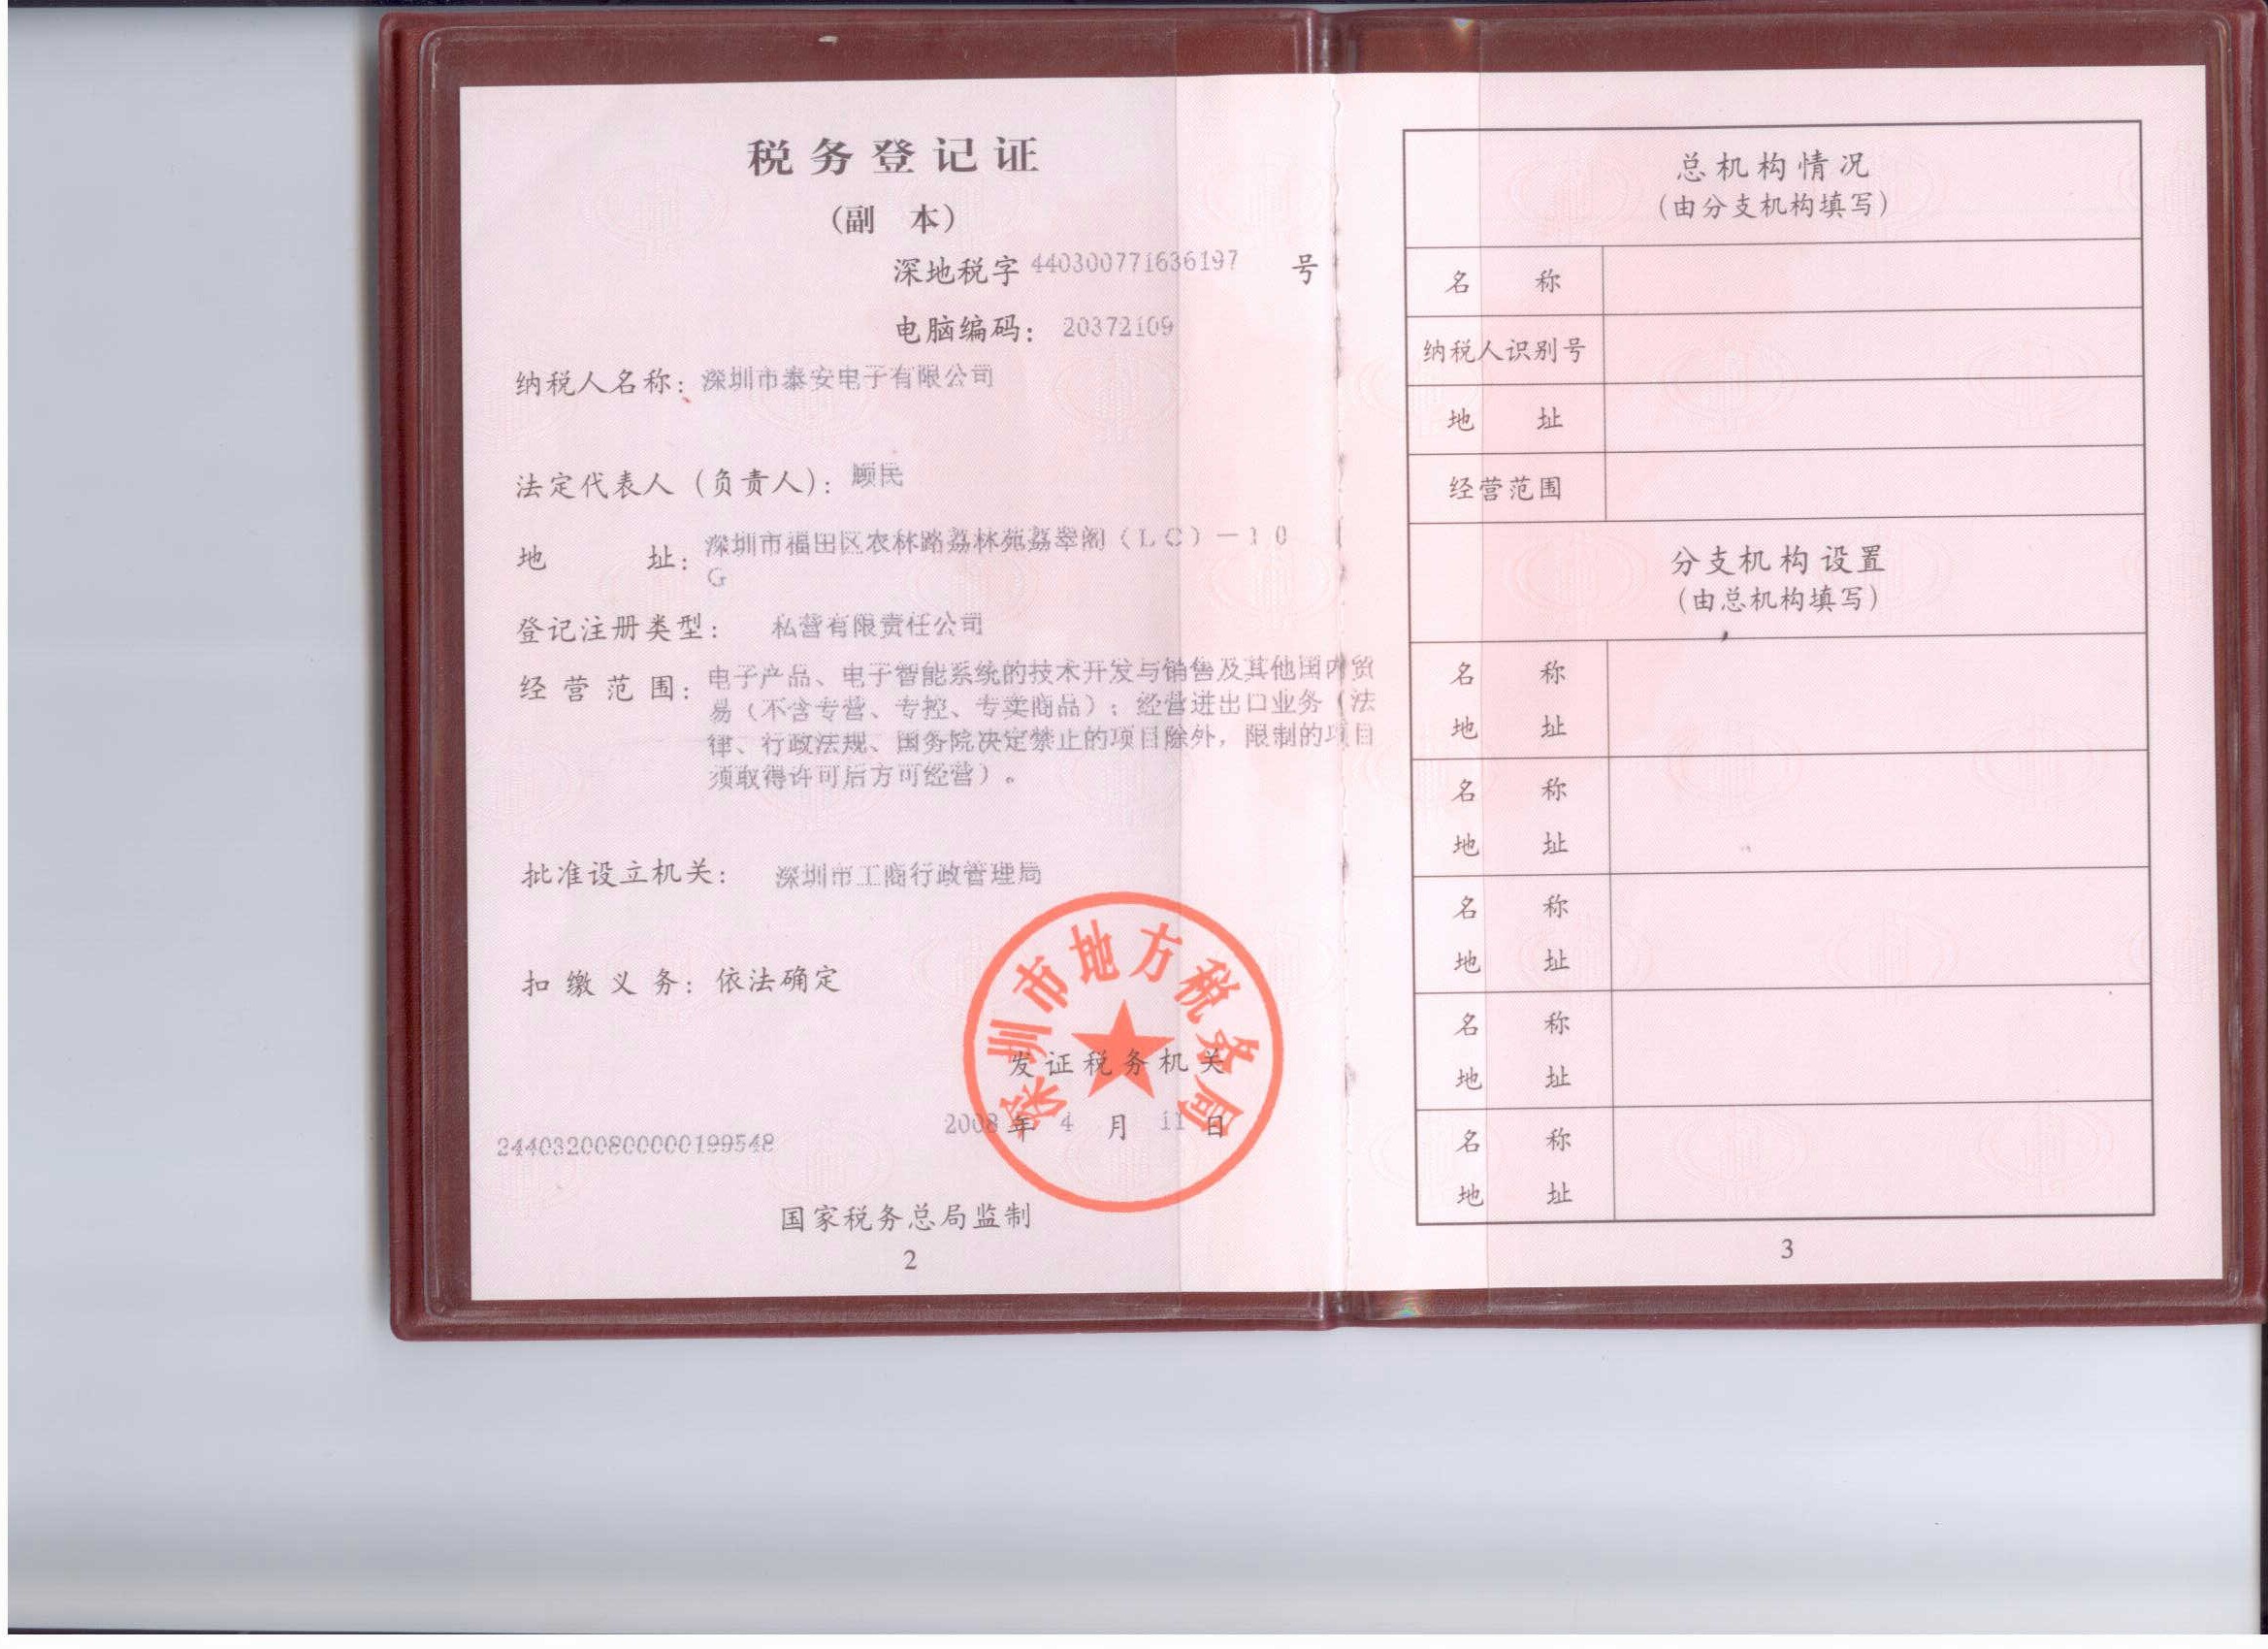 税务登记证
(副 本)
深地税字 440300771636197 号
电脑编码： 20372109
纳税人名称：深圳市泰安电子有限公司
法定代表人（负责人）：顾民
地 址：深圳市福田区农林路荔林苑荔翠阁（LC）－10
G
登记注册类型： 私营有限责任公司
经营范围：电子产品、电子智能系统的技术开发与销售及其他国内贸
易（不含专营、专控、专卖商品）；经营进出口业务（法
律、行政法规、国务院决定禁止的项目除外，限制的项目
须取得许可后方可经营）。
批准设立机关： 深圳市工商行政管理局
扣缴义务：依法确定
深圳市地方税务局
发证税务机关
2008 年 4 月 11 日
24403200800000199548
国家税务总局监制
2
总机构情况
(由分支机构填写)
名 称
纳税人识别号
地 址
经营范围
分支机构设置
(由总机构填写)
名 称
地 址
名 称
地 址
名 称
地 址
名 称
地 址
名 称
地 址
3